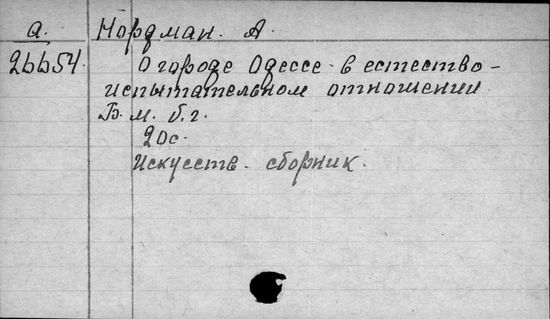 а. Нордман. А.
26654. О городе Одессе в естество-
испытательном отношении.
Б. м. б. г.
20с.
Искусств. сборник.